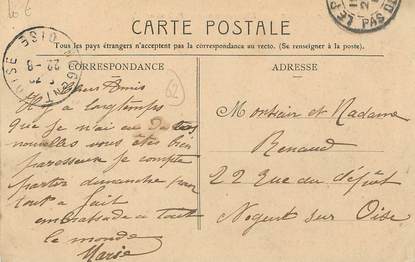 CARTE POSTALE
Tous les pays étrangers n'acceptent pas la correspondance au recto. (Se renseigner à la poste).
CORRESPONDANCE
ADRESSE
Chers Amis
Il y a longtemps
que je n'ai eu de tes
nouvelles vous êtes bien
paresseux je compte
partir dimanche pour
tout a fait
embrassade a tout
le monde
Marie
Monsieur et Madame
Renaud
22 Rue du dépôt
Nogent sur Oise
OISE
22 - 8
PAS DE
52